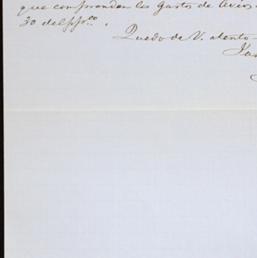 que comprenden los gastos de Avios
30 del ppdo.
Quedo de V. atento